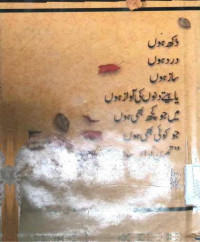 دکھ ہوں
درد ہوں
ساز ہوں
یا بیتے دنوں کی آواز ہوں
میں جو کچھ بھی ہوں
جو کوئی بھی ہوں